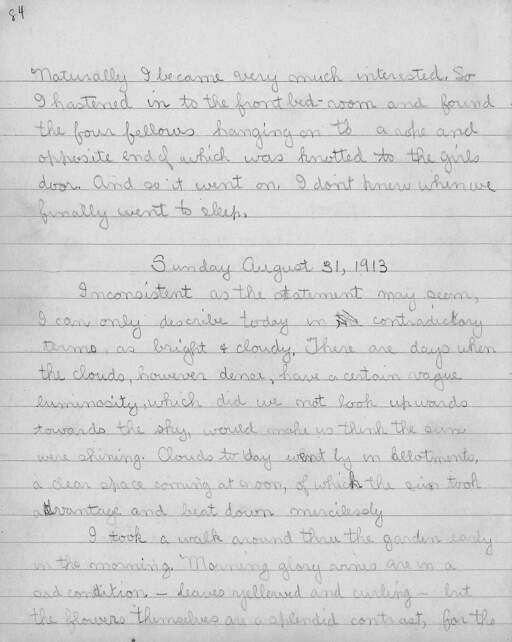 84
Naturally I became very much interested. So
I hastened in to the front bed-room and found
the four fellows hanging on to a rope and
opposite end of which was knotted to the girls
door. And so it went on. I dont know when we
finally went to sleep.
Sunday August 31, 1913
Inconsistent as the statement may seem,
I can only describe today in contradictory
terms, as bright & cloudy. There are days when
the clouds, however dense, have a certain vague
luminosity, which did we not look upwards
towards the sky, would make us think the sun
were shining. Clouds to day went by in allotments,
a clear space coming at noon, of which the sun took
advantage and beat down mercilessly
I took a walk around thru the garden early
in the morning. Morning glory vines are in a
sad condition – leaves yellowed and curling – but
the flowers themselves are a splendid contrast, for the